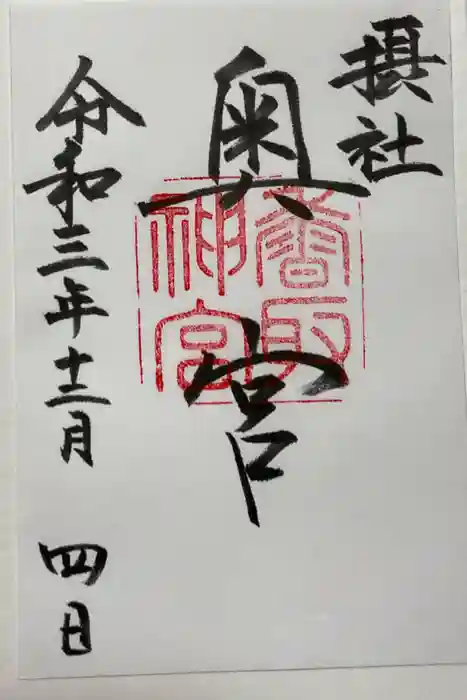 摂社
奥宮
香取神宮
令和三年十二月四日